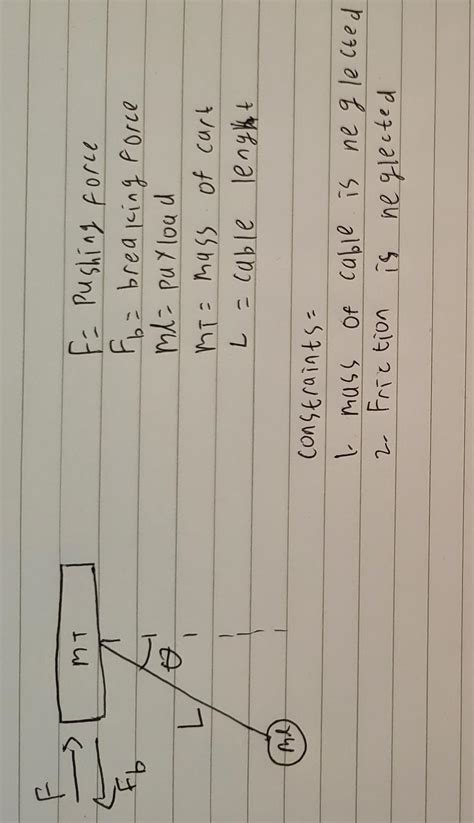 F
Fb
mT
L
θ
ml
F= Pushing force
Fb= breaking force
ml= payload
mT= mass of cart
L = cable lenght
constraints=
1- mass of cable is neglected
2- Friction is neglected